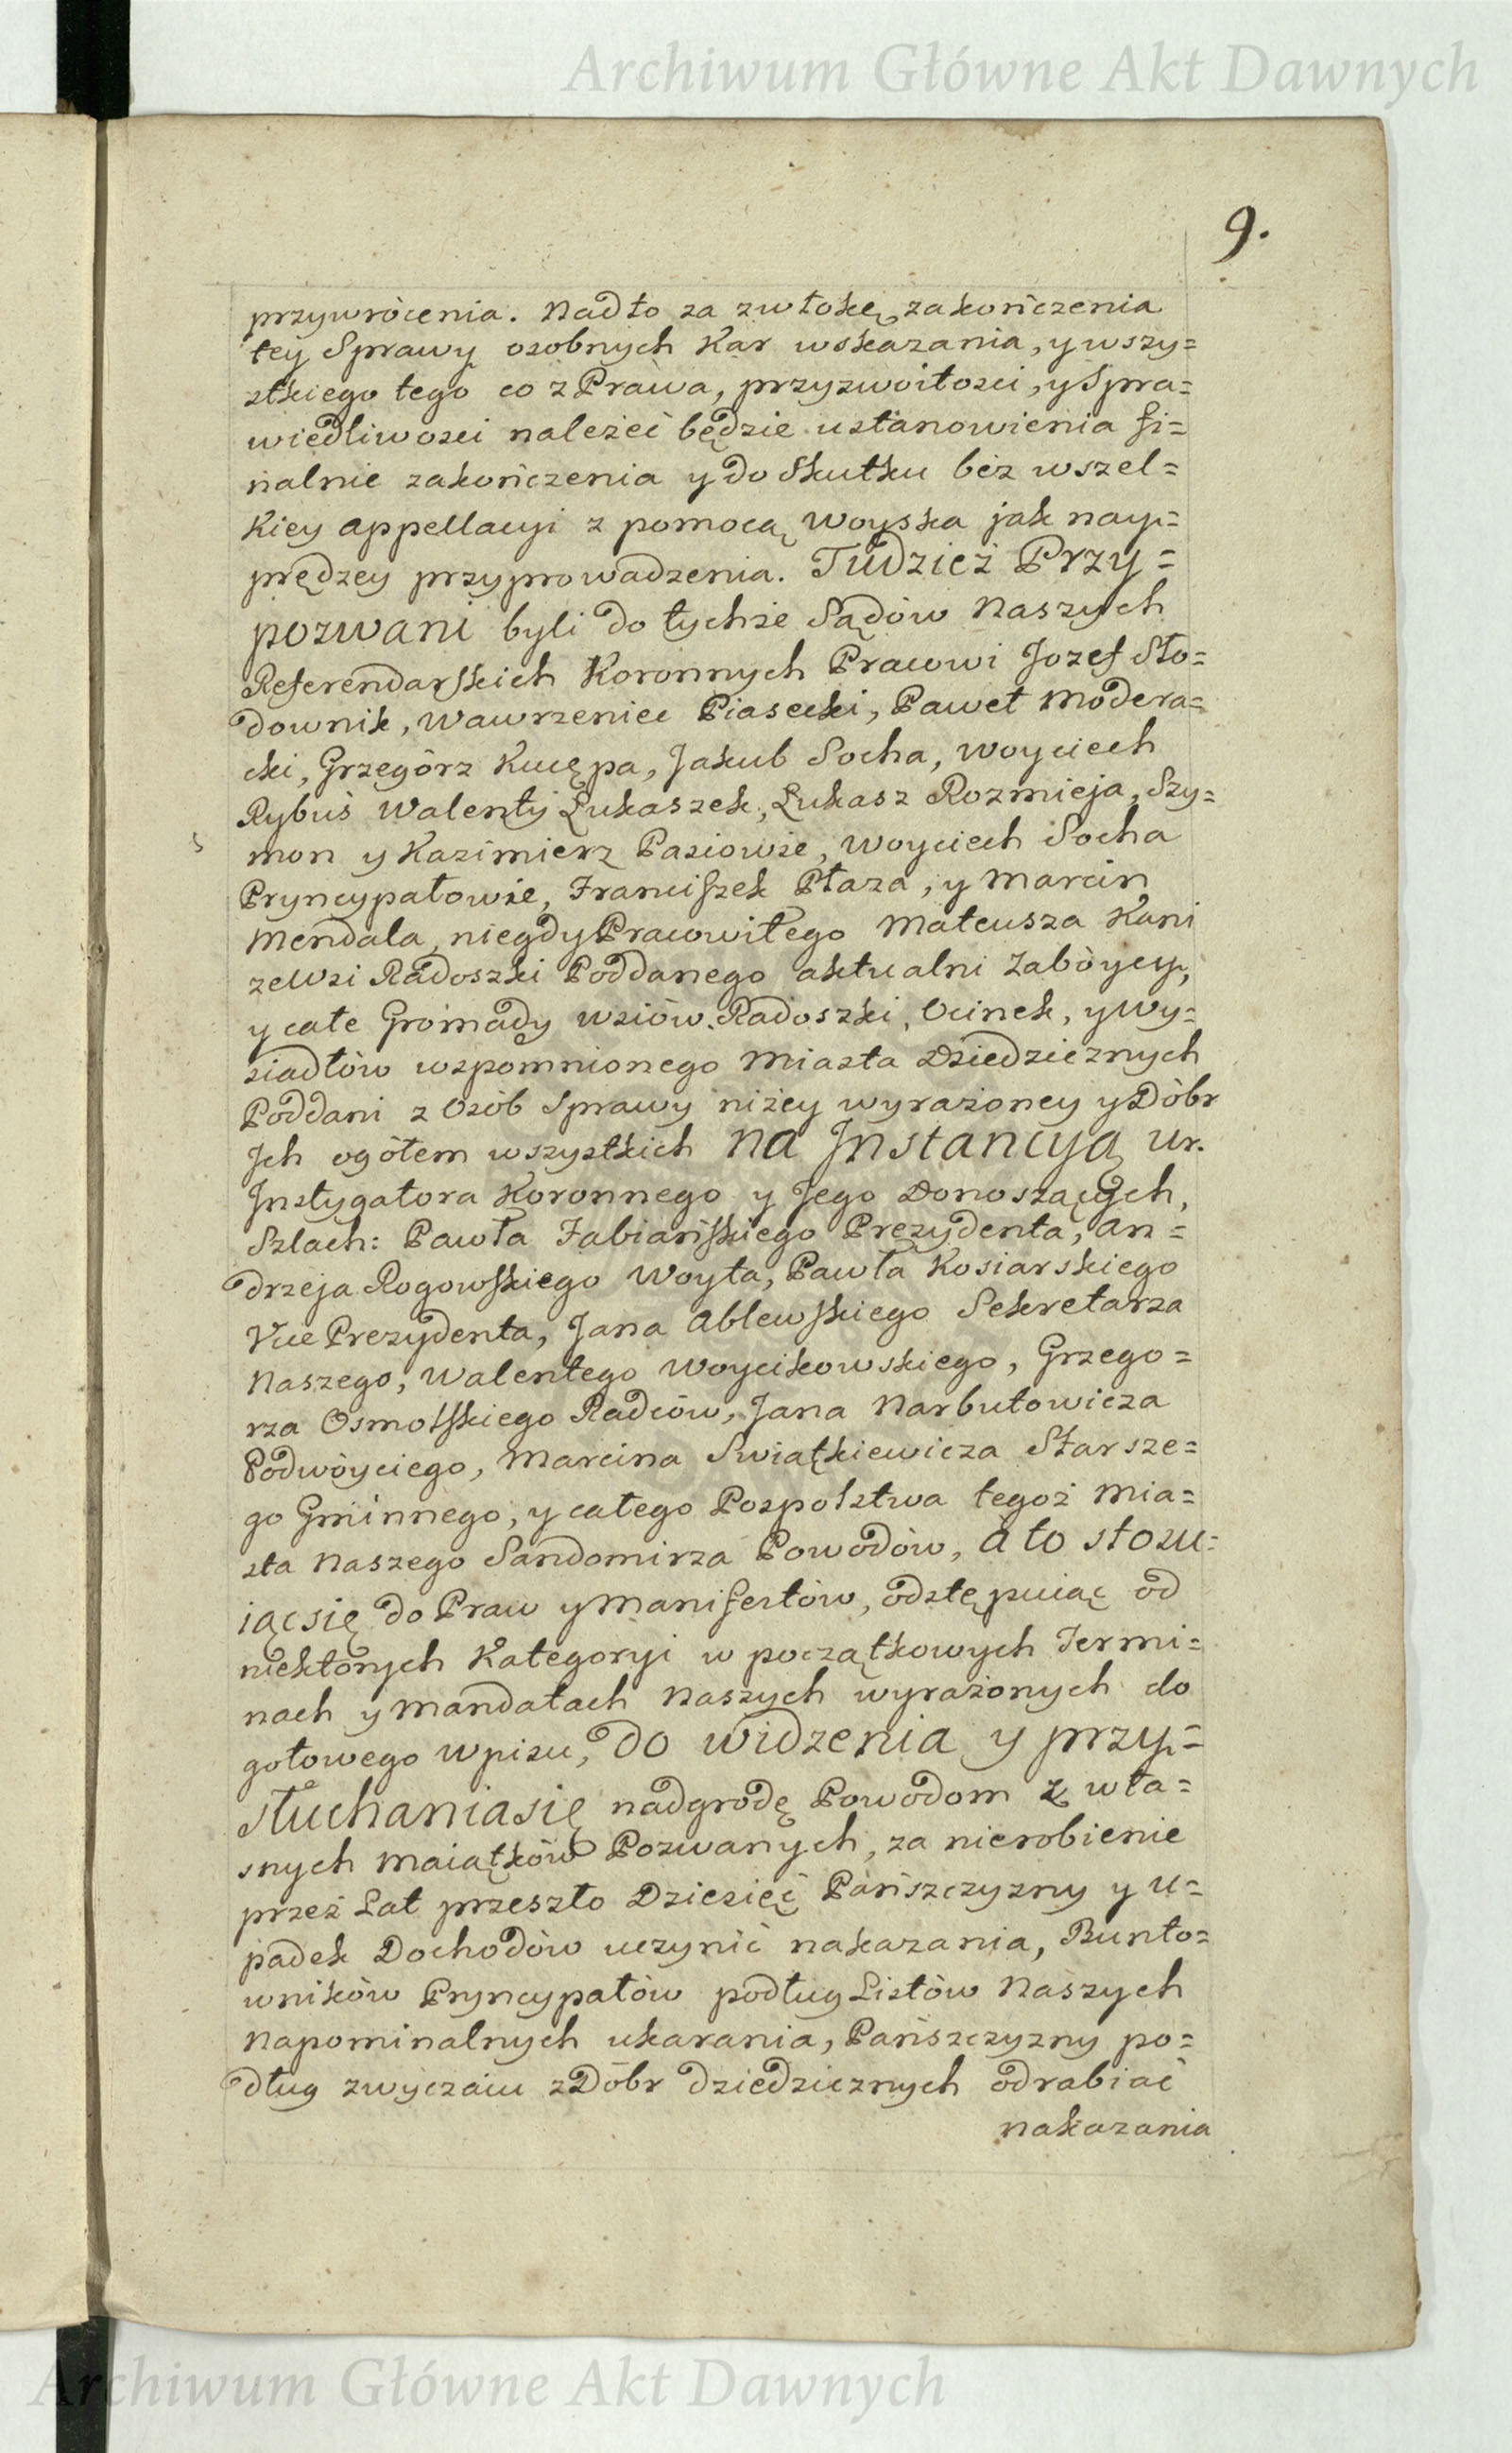 Archiwum Główne Akt Dawnych
9.
przywrócenia. Nadto za zwłokę zakończenia
tey Sprawy osobnych Kar wskazania, y wszy=
stkiego tego co z Prawa, przyzwoitosci, y Spra=
wiedliwosci należeć będzie ustanowienia fi=
nalnie zakończenia y do Skutku bez wszel=
kiey appellacyi z pomocą woyska jak nay=
prędzey przyprowadzenia. Tudzież Przy=
pozwani byli do tychże Sądów Naszych
Referendarskich Koronnych Pracowi Jozef Sło=
downik, Wawrzeniec Piasecki, Paweł Modera=
cki, Grzegórz Kucępa, Jakub Socha, Woyciech
Rybuś Walenty Łukaszek, Łukasz Rozmieja, Szy=
mon y Kazimierz Pasiowie, Woyciech Socha
Pryncypałowie, Franciszek Płaza, y Marcin
Mendala, niegdy Pracowitego Mateusza Kani
ze Wsi Radoszki Poddanego aktualni Zabóycy,
y całe Gromady wsiów Radoszki, Ocinek, y Wy=
siadłów wspomnionego Miasta Dziedzicznych
Poddani z Osób Sprawy niżey wyrażoney y Dóbr
Jch ogółem wszystkich Na Jnstancyą Ur.
Jnstygatora Koronnego y Jego Donoszących,
Szlach: Pawła Fabiańskiego Prezydenta, An=
drzeja Rogowskiego Woyta, Pawła Kosiarskiego
Vice Prezydenta, Jana Ablewskiego Sekretarza
Naszego, Walentego Woycikowskiego, Grzego=
rza Osmolskiego Radców, Jana Narbutowicza
Podwóyciego, Marcina Swiątkiewicza Starsze=
go Gminnego, y całego Pospolstwa tegoż Mia=
sta Naszego Sandomirza Powodów, a to stosu=
iąc się do Praw y Manifestów, odstępuiąc od
niektórych Kategoryi w początkowych Termi=
nach y Mandatach Naszych wyrażonych do
gotowego wpisu, do widzenia y przy=
słuchania się nadgrodę Powodom z wła=
snych maiątków Pozwanych, za nierobienie
przez Lat przeszło Dziesięć Pańszczyzny y u=
padek Dochodów uczynić nakazania, Bunto=
wników Pryncypałów podług Listów Naszych
Napominalnych ukarania, Pańszczyzny po=
dług zwyczaiu z Dóbr dziedzicznych odrabiać
nakazania
Archiwum Główne Akt Dawnych